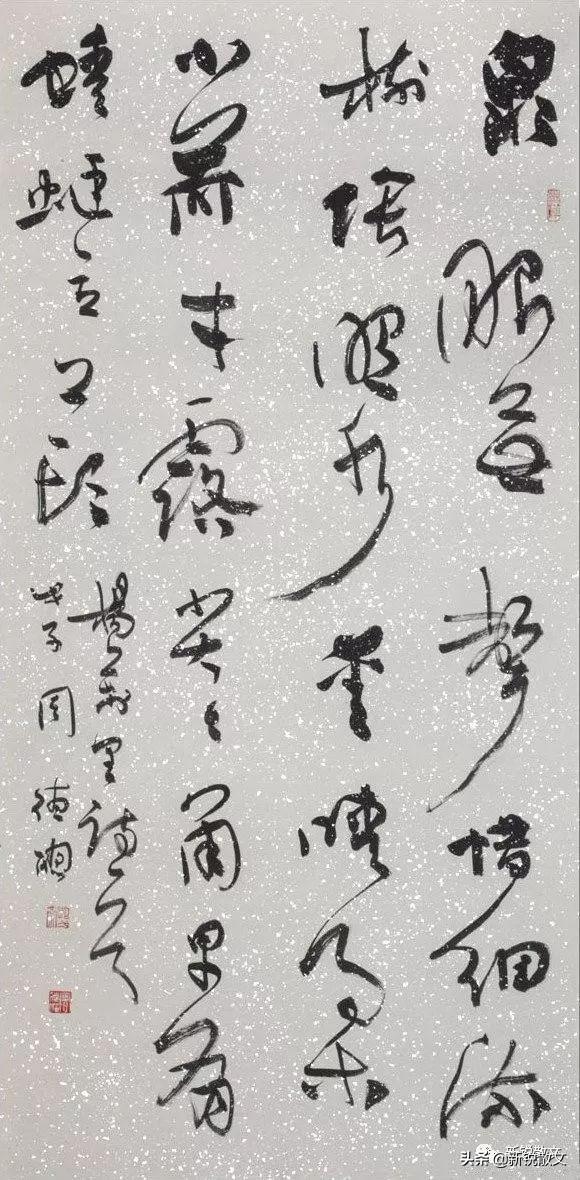 泉眼无聲惜细流
樹陰照水愛晴柔
小荷才露尖尖角早有
蜻蜓立上头
楊万里詩一首
戊子周德
新锐散文
头条 @新锐散文